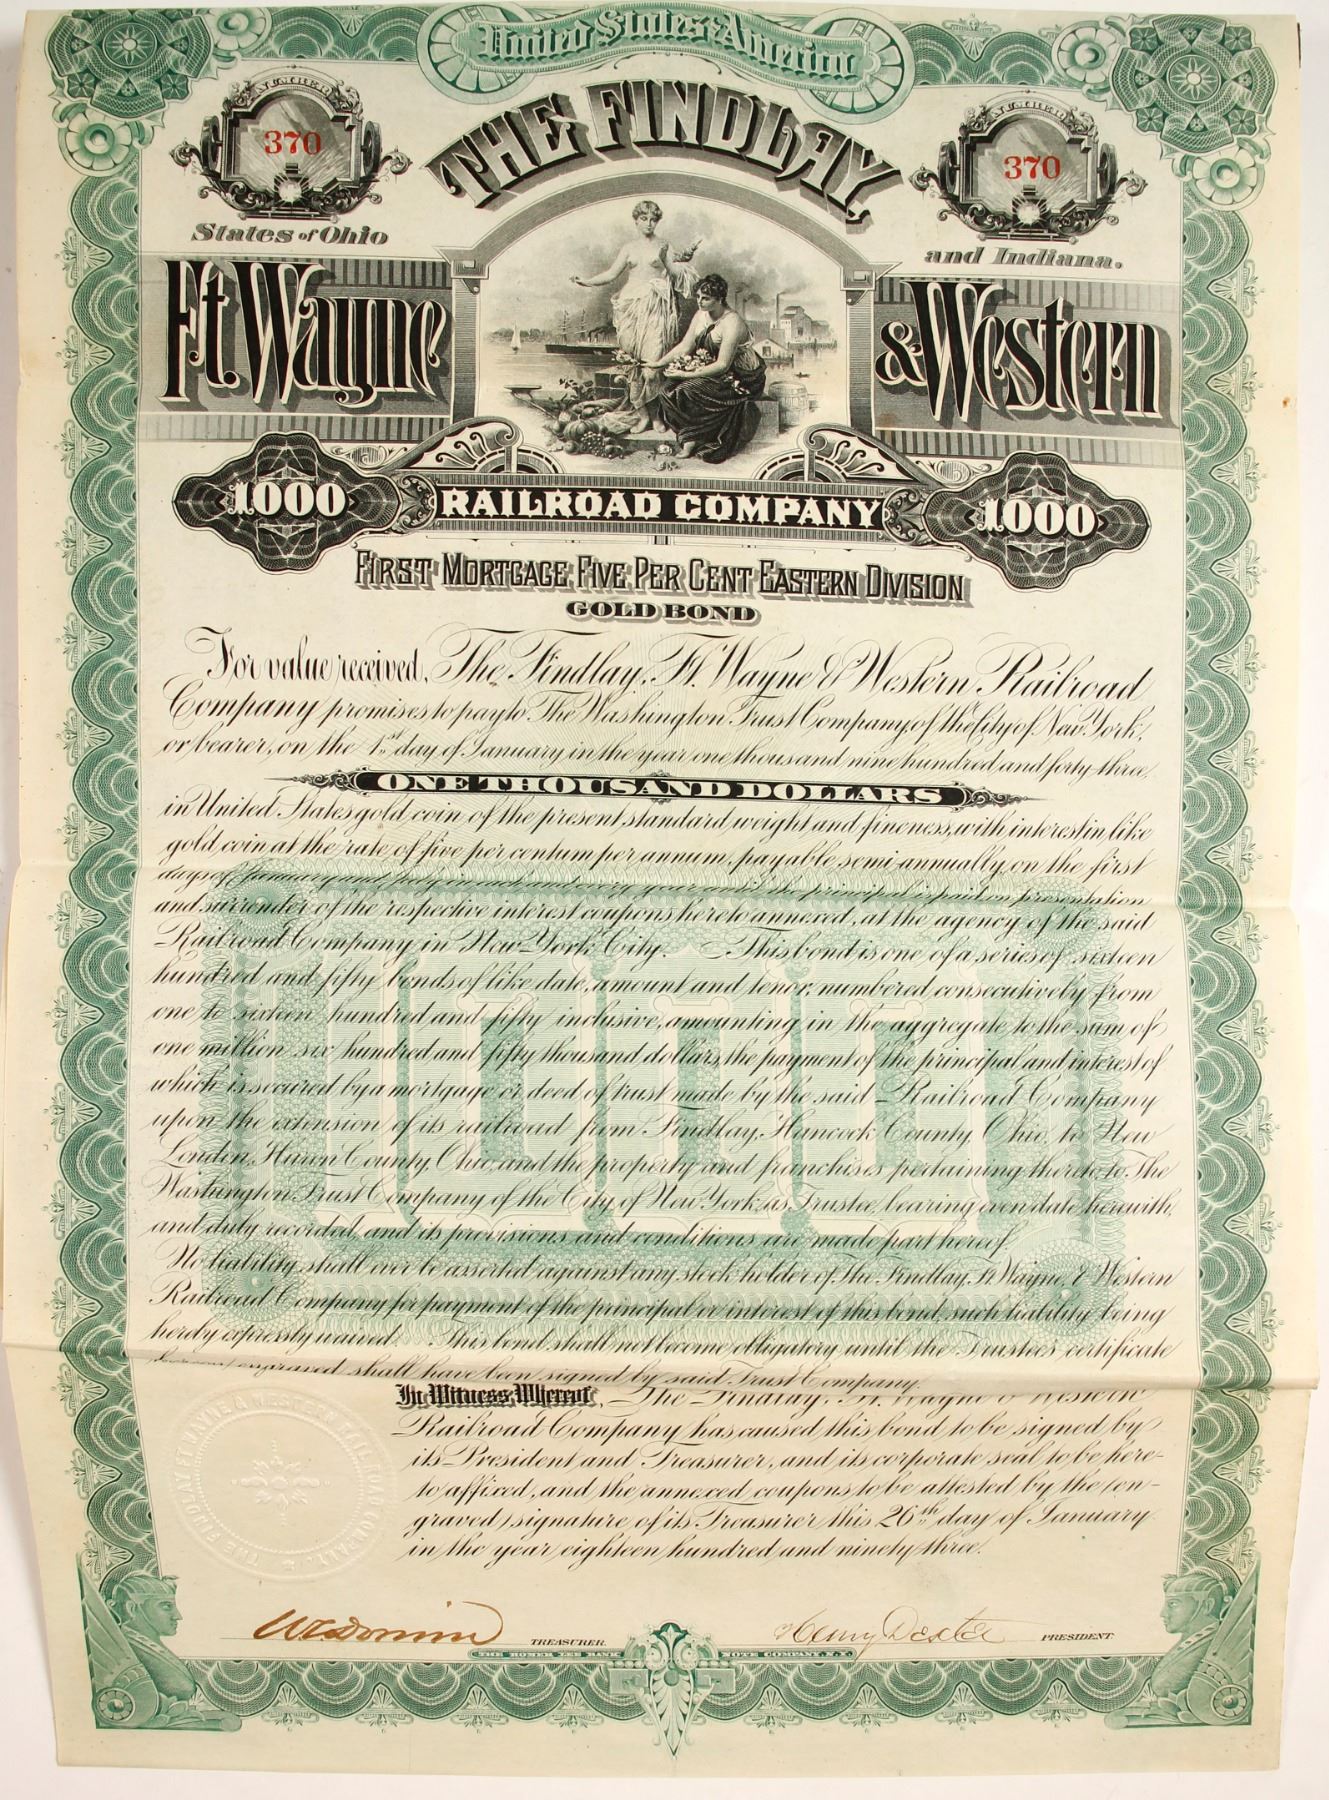 United States of America
NUMBER
370
NUMBER
370
THE FINDLAY,
States of Ohio
and Indiana.
Ft Wayne
& Western
1000
RAILROAD COMPANY
1000
FIRST MORTGAGE FIVE PER CENT EASTERN DIVISION
GOLD BOND
For value received, The Findlay, Ft. Wayne & Western Railroad
Company promises to pay to The Washington Trust Company, of the City of New York,
or bearer, on the 1st day of January in the year one thousand nine hundred and forty three,
ONE THOUSAND DOLLARS
in United States gold coin of the present standard, weight and fineness, with interest in like
gold coin at the rate of five per centum per annum, payable semi-annually, on the first
days of January and July in each and every year until the principal is paid on presentation
and surrender of the respective interest coupons hereto annexed, at the agency of the said
Railroad Company in New York City. This bond is one of a series of sixteen
hundred and fifty bonds of like date, amount and tenor, numbered consecutively from
one to sixteen hundred and fifty inclusive, amounting in the aggregate to the sum of
one million six hundred and fifty thousand dollars, the payment of the principal and interest of
which is secured by a mortgage or deed of trust made by the said Railroad Company
upon the extension of its railroad from Findlay, Hancock County, Ohio, to New
London, Huron County, Ohio, and the property and franchises pertaining thereto, to The
Washington Trust Company of the City of New York, as Trustee, bearing even date herewith,
and duly recorded, and its provisions and conditions are made part hereof.
No liability shall ever be asserted against any stock holder of The Findlay, Ft Wayne, & Western
Railroad Company for payment of the principal or interest of this bond, such liability being
hereby expressly waived. This bond shall not become obligatory until the Trustees certificate
hereon engraved shall have been signed by said Trust Company.
In Witness Whereof, The Findlay, Ft Wayne & Western
Railroad Company has caused this bond to be signed by
its President and Treasurer, and its corporate seal to be here-
to affixed, and the annexed coupons to be attested by the (en-
graved) signature of its Treasurer this 26th day of January
in the year eighteen hundred and ninety three.
THE FINDLAY FT WAYNE & WESTERN RAILROAD COMPANY
TREASURER.
Henry Dexter
PRESIDENT.
THE HOMER LEE BANK NOTE COMPANY, N.Y.